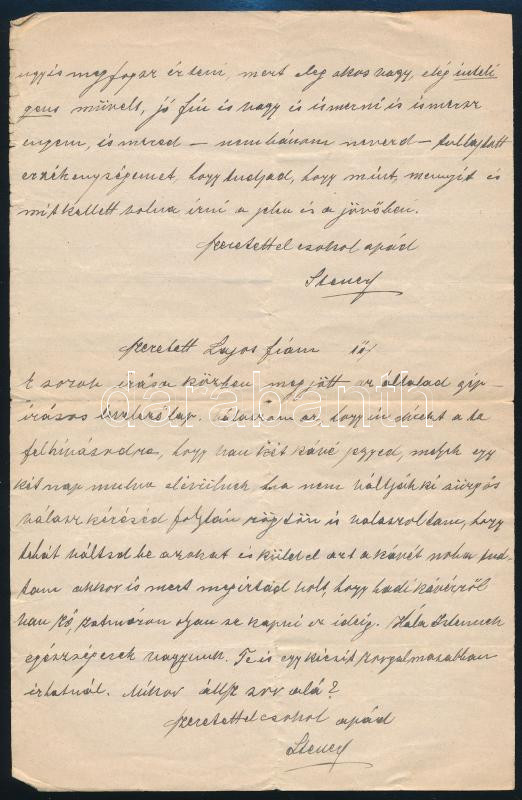 ugyis megfogsz érteni, mert elég okos vagy, elég inteli
gens müvelt, jó fiú is vagy és ismerni is ismersz
engem, ismered – nem bánom neved – tultajtott
érzékenységemet, hogy tudjad, hogy mint, mennyit és
mit kellett volna irni a jelen és a jövőben.
szeretettel csokol apád
Szeretett Lajos fiam
E sorok irása közben megjött az általad gép-
irásos levelezőlap. Válaszom az, hogy én direkt a te
felhivásodra, hogy van két kávé jegyed, melyek egy
két nap mulva elévülnek ha nem váltják ki sürgős
válasz kérésed folytán rögtön is valaszoltam, hogy
tehát váltsd be azokat és küldd el azt a kávét noha tud-
tam akkor is mert megirtad volt, hogy hadi kávéról
van szó, Szatmáron olyan se kapni ez ideig. Hála Istennek
egészségesek vagyunk. Te is egy kicsit szorgalmasabban
irhatnál. Mikor állsz sor alá?
szeretettel csokol apád
darabanth